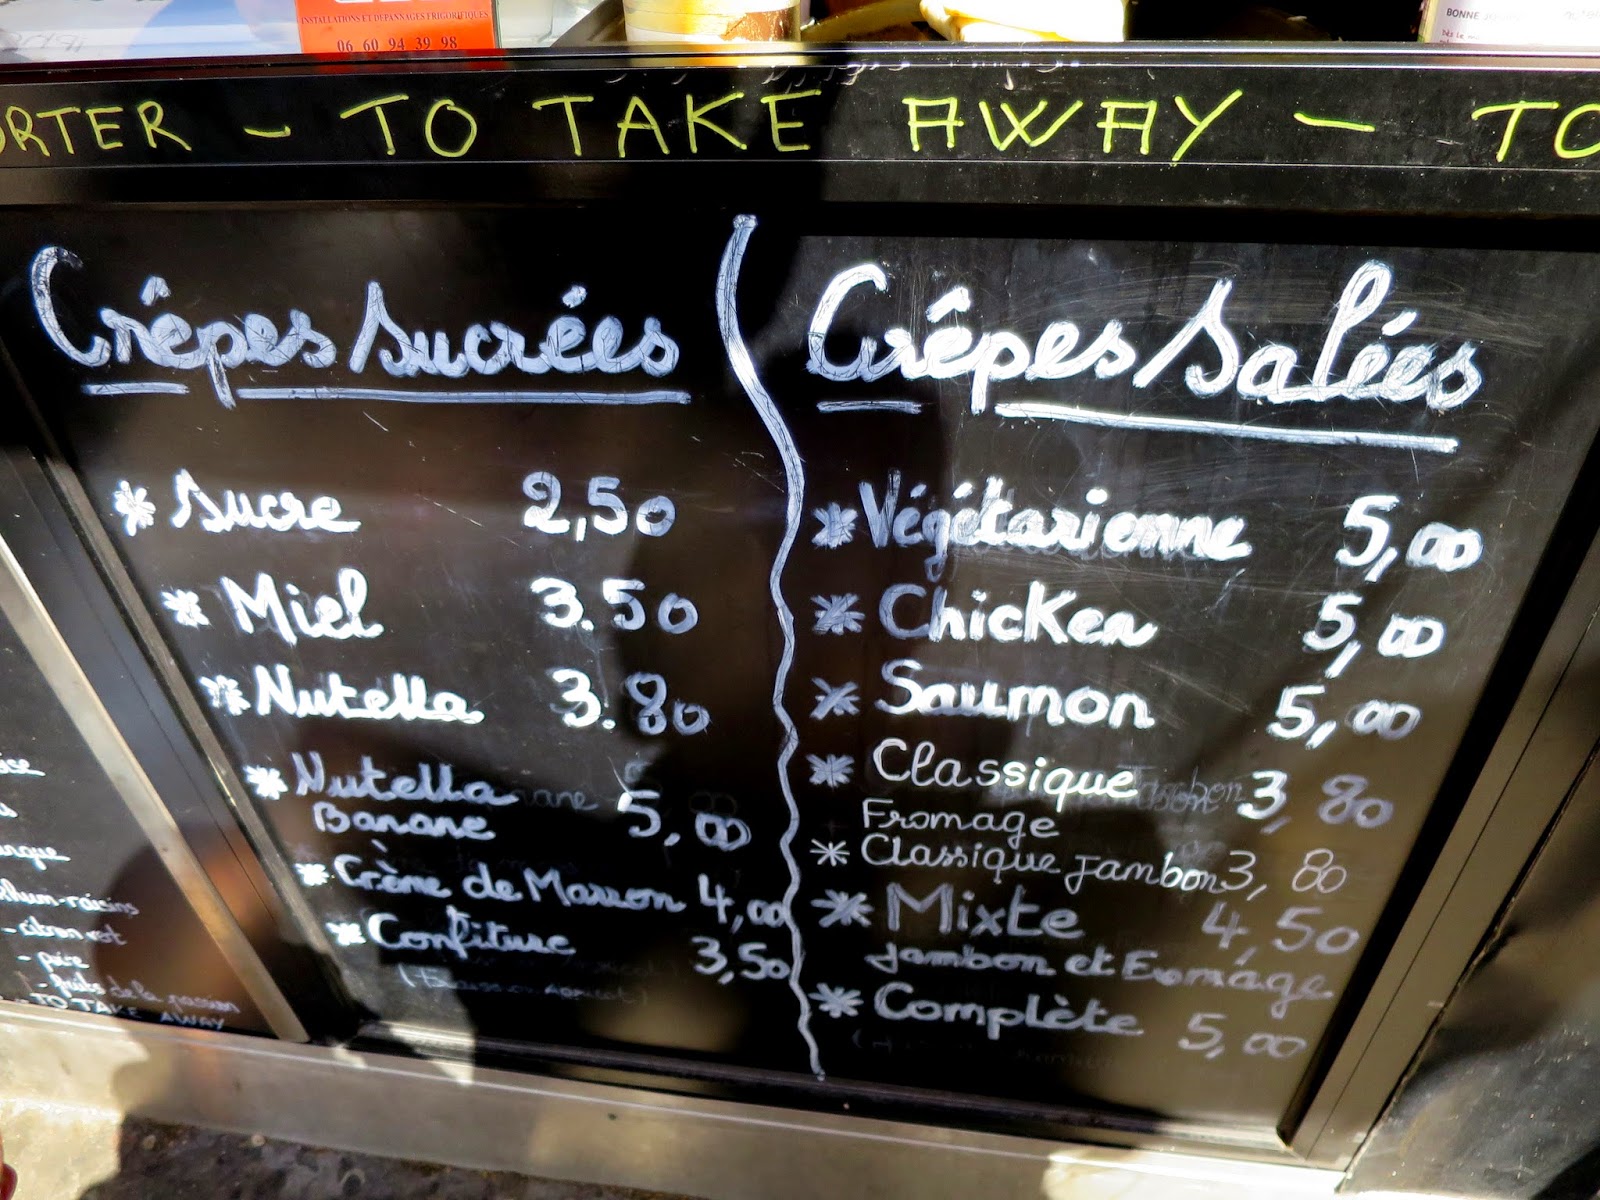 INSTALLATIONS ET DEPANNAGES FRIGORIFIQUES
06 60 94 39 98
BONNE
ORTER - TO TAKE AWAY - TO
Crêpes Sucrées
* Sucre 2,50
* Miel 3.50
* Nutella 3.80
* Nutella
Banane 5,00
* Crème de Marron 4,00
* Confiture 3,50
Crêpes Salées
* Végétarienne 5,00
* Chicken 5,00
* Saumon 5,00
* Classique 3,80
Fromage
* Classique Jambon 3,80
* Mixte 4,50
Jambon et Fromage
* Complète 5,00
rhum-raisins
- citron vert
- poire
- fruits de la passion
- TO TAKE AWAY